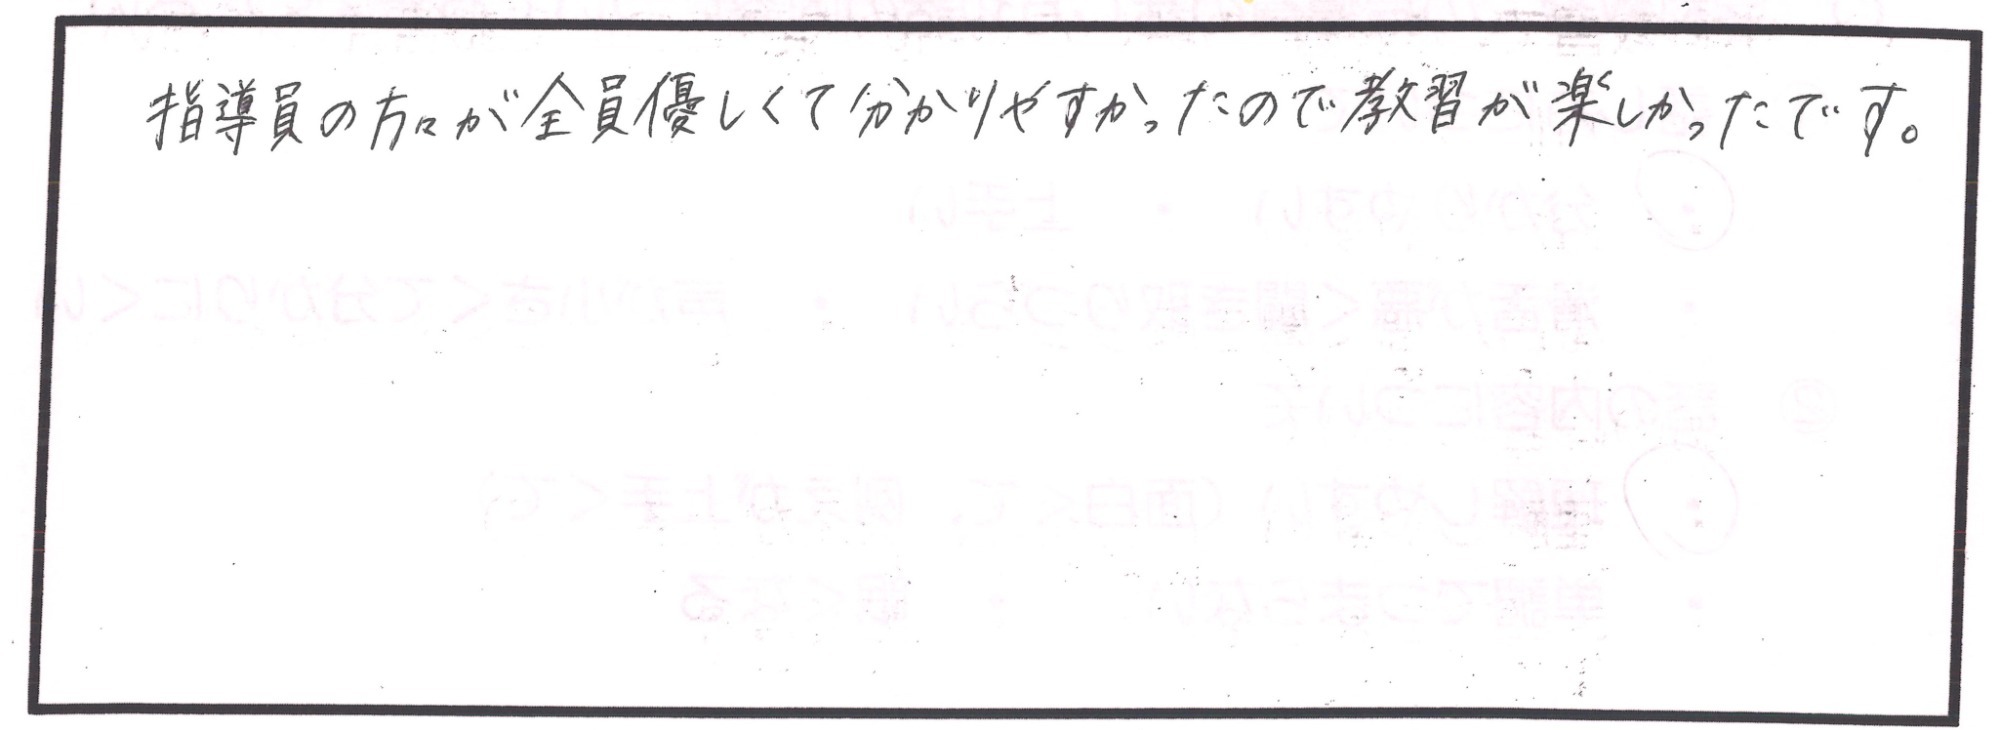 指導員の方々が全員優しくて分かりやすかったので教習が楽しかったです。